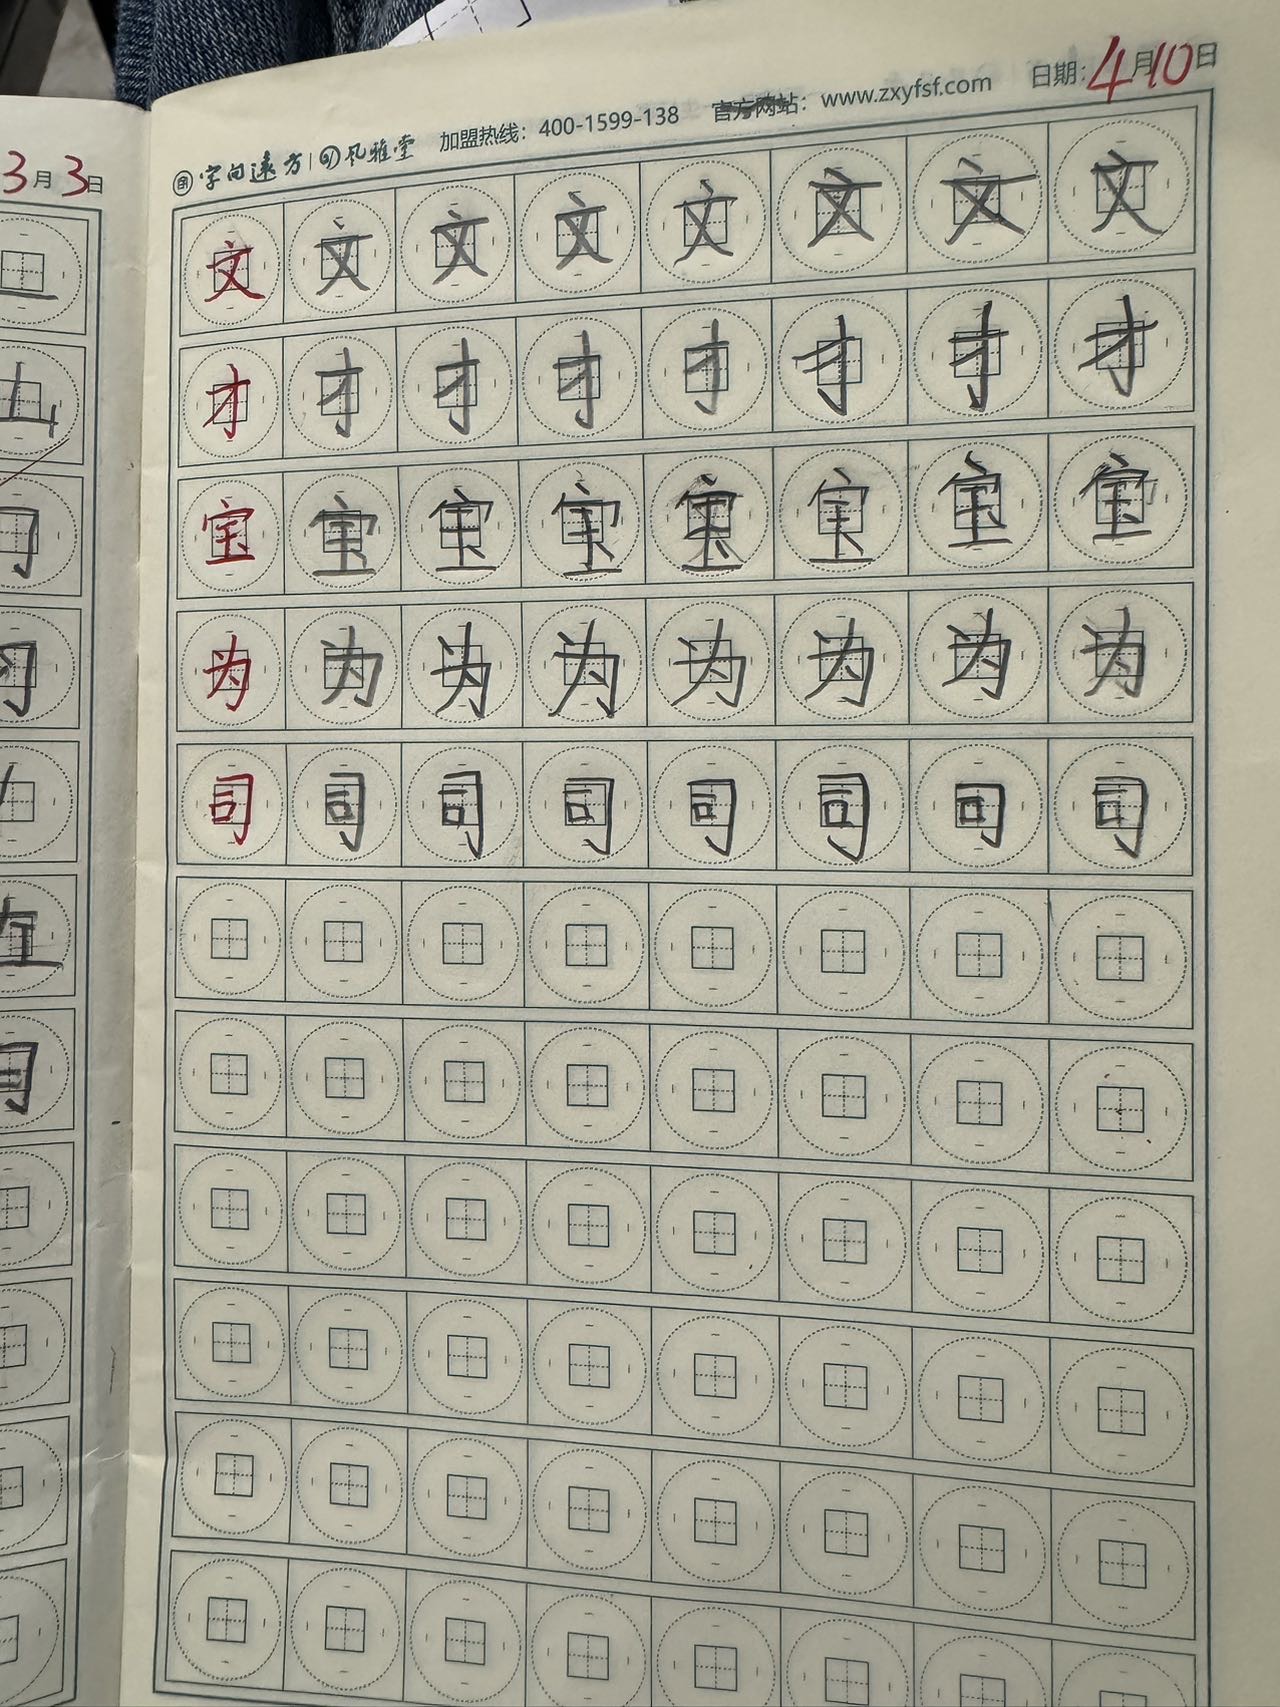 字向远方 | 风雅堂 加盟热线：400-1599-138 官方网站：www.zxyfsf.com 日期：4月10日
3月3日
文 文 文 文 文 文 文 文
才 才 才 才 才 才 才 才
宝 宝 宝 宝 宝 宝 宝 宝
为 为 为 为 为 为 为 为
司 司 司 司 司 司 司 司